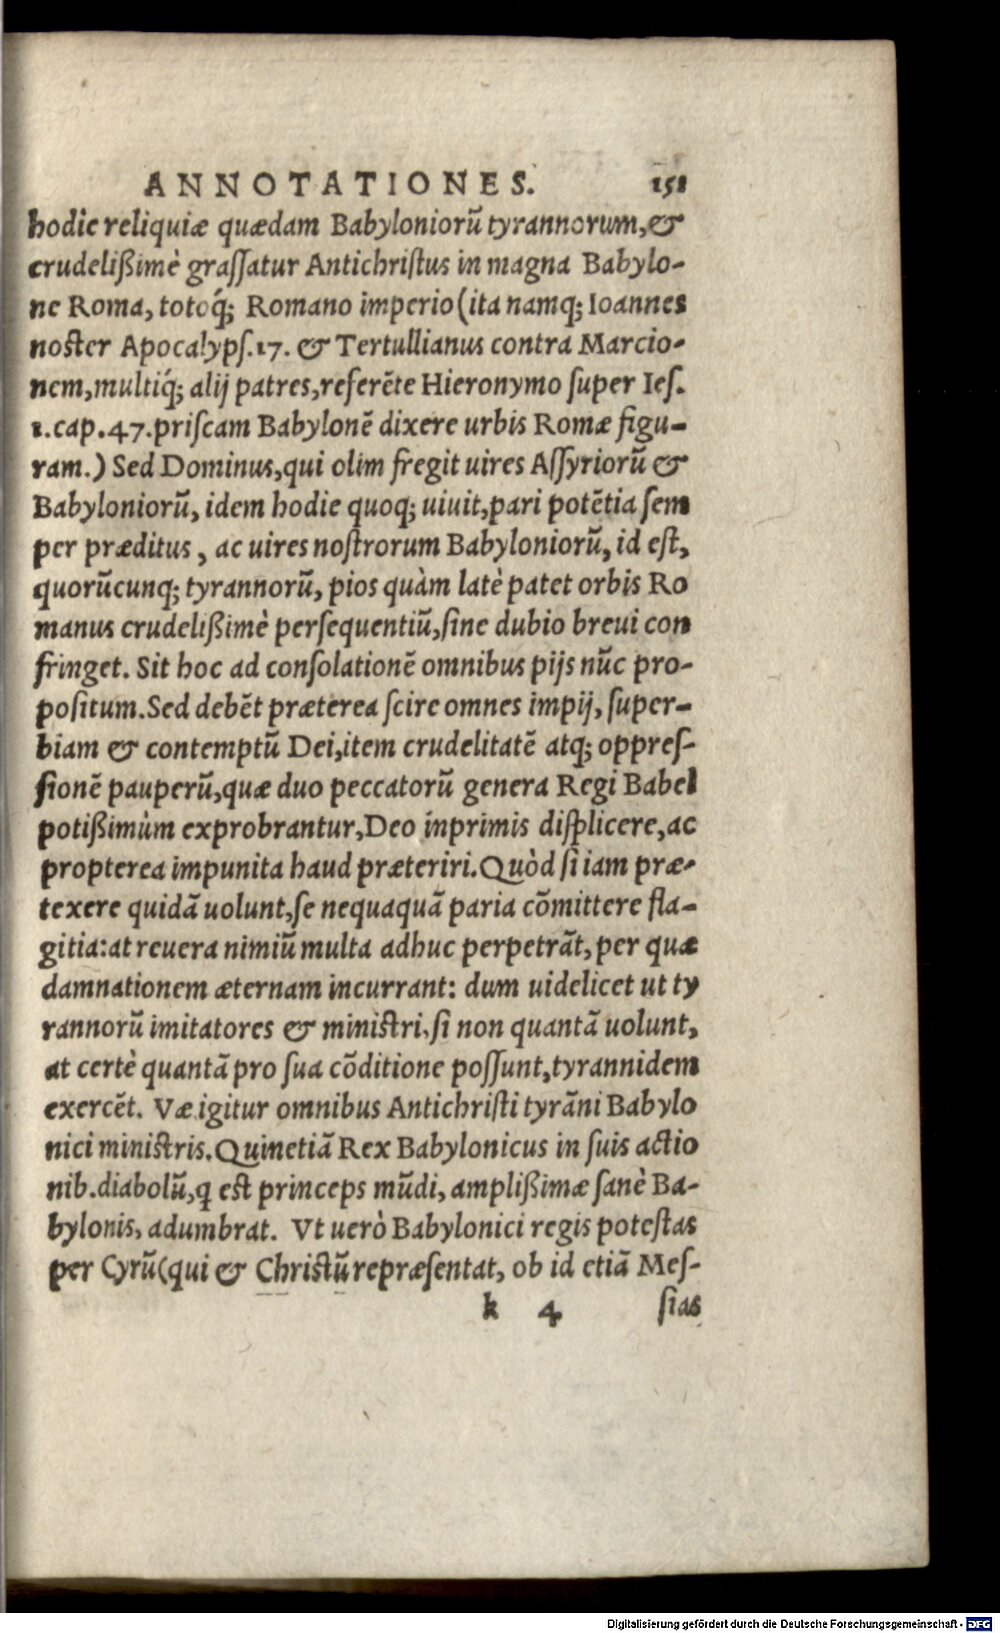 ANNOTATIONES. 151
hodie reliquiæ quædam Babyloniorũ tyrannorum, &
crudelißimè graſſatur Antichriſtus in magna Babylo-
ne Roma, totoq́; Romano imperio (ita namq; Ioannes
noſter Apocalypſ.17. & Tertullianus contra Marcio-
nem, multiq́; alij patres, referẽte Hieronymo ſuper Ieſ.
1.cap.47.priſcam Babylonẽ dixere urbis Romæ figu-
ram.) Sed Dominus, qui olim fregit uires Aſſyriorũ &
Babyloniorũ, idem hodie quoq; uiuit, pari potẽtia ſem
per præditus, ac uires noſtrorum Babyloniorũ, id eſt,
quorũcunq; tyrannorũ, pios quàm latè patet orbis Ro
manus crudelißimè perſequentiũ, ſine dubio breui con
fringet. Sit hoc ad conſolationẽ omnibus pijs nũc pro-
poſitum. Sed debẽt præterea ſcire omnes impij, ſuper-
biam & contemptũ Dei, item crudelitatẽ atq; oppreſ-
ſionẽ pauperũ, quæ duo peccatorũ genera Regi Babel
potißimùm exprobrantur, Deo inprimis diſplicere, ac
propterea impunita haud præteriri. Quòd ſi iam præ-
texere quidã uolunt, ſe nequaquã paria cõmittere fla-
gitia: at reuera nimiũ multa adhuc perpetrãt, per quæ
damnationem æternam incurrant: dum uidelicet ut ty
rannorũ imitatores & miniſtri, ſi non quantã uolunt,
at certè quantã pro ſua cõditione poſſunt, tyrannidem
exercẽt. Væ igitur omnibus Antichriſti tyrãni Babylo
nici miniſtris. Quinetiã Rex Babylonicus in ſuis actio
nib. diabolũ, q eſt princeps mũdi, amplißimæ ſanè Ba-
bylonis, adumbrat. Vt uerò Babylonici regis poteſtas
per Cyrũ (qui & Chriſtũ repræſentat, ob id etiã Meſ-
k 4 ſias
Digitalisierung gefördert durch die Deutsche Forschungsgemeinschaft - DFG